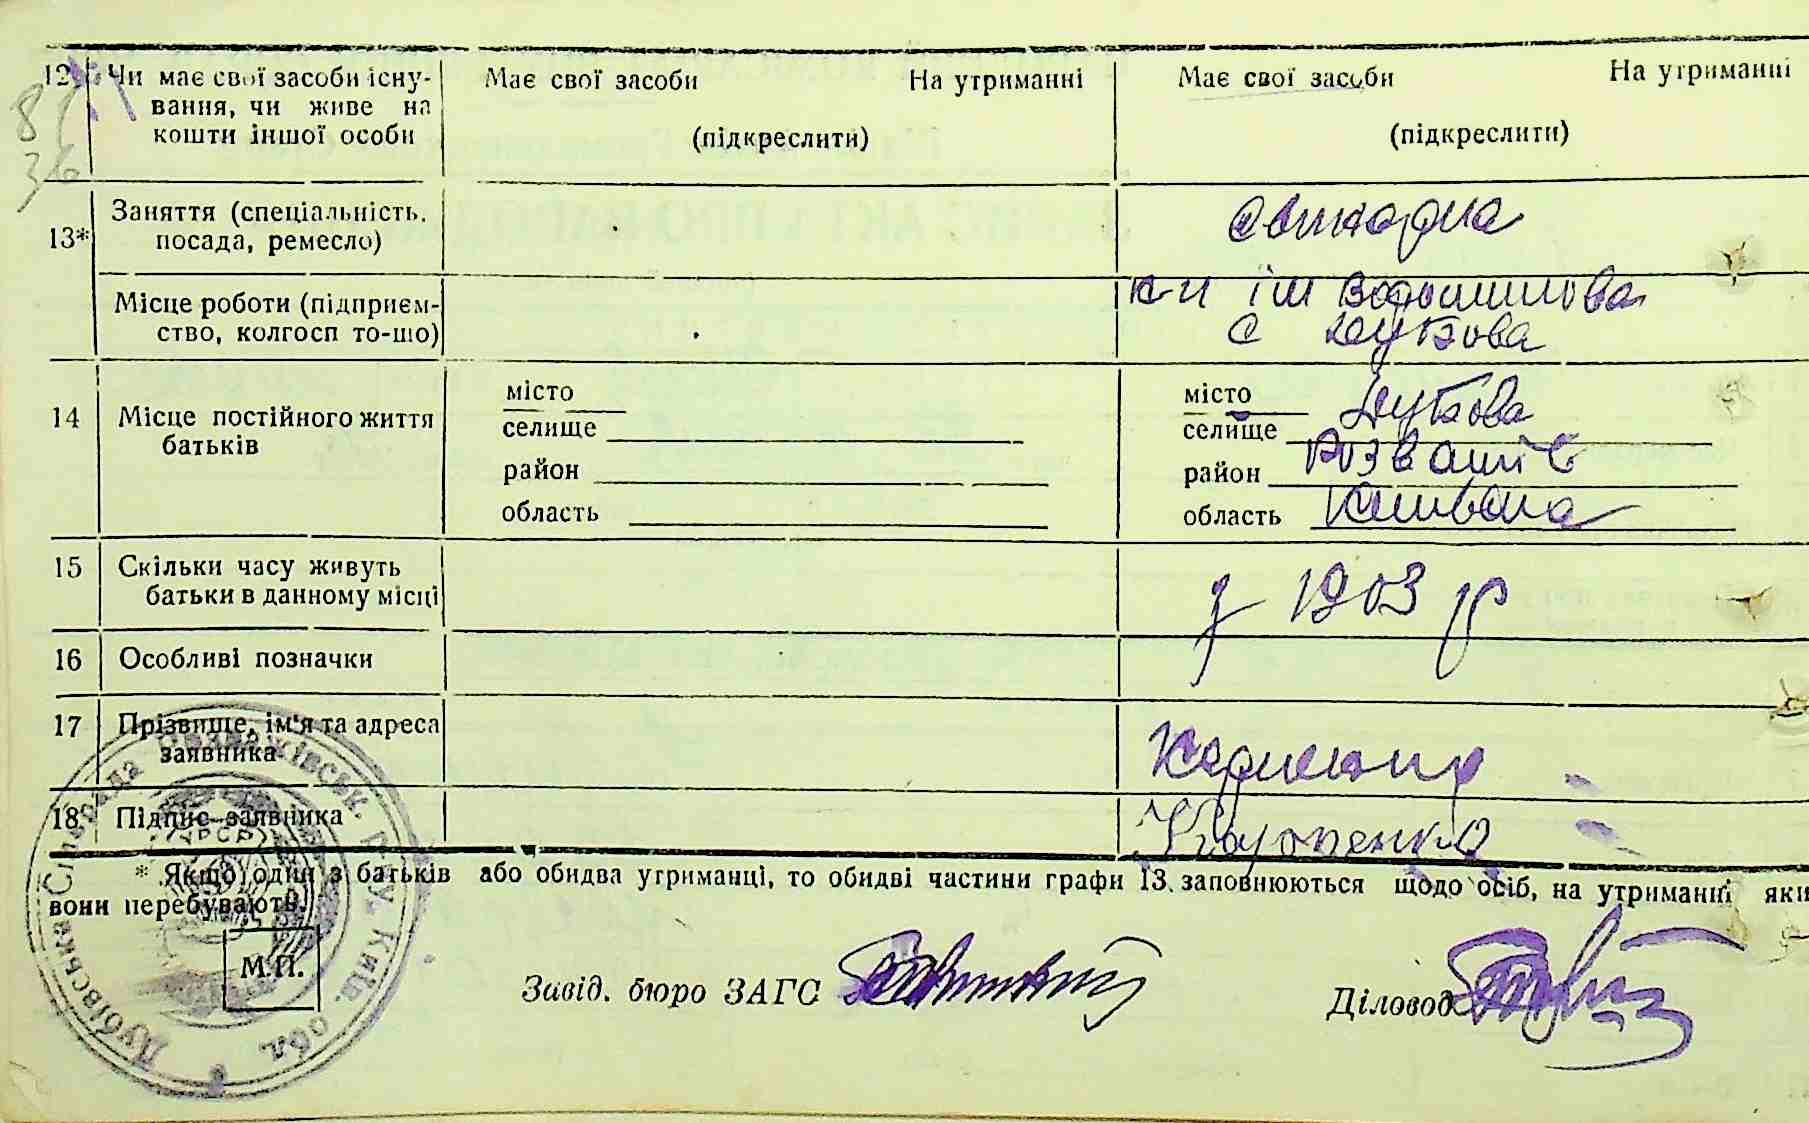 12 Чи має свої засоби існу- Має свої засоби На утриманні Має свої засоби На утриманні
вання, чи живе на
кошти іншої особи (підкреслити) (підкреслити)
81
36
13* Заняття (спеціальність, посада, ремесло) свинарка
Місце роботи (підприєм- к-п ім Ворошилова
ство, колгосп то-що) с
14 Місце постійного життя батьків
місто місто
селище селище
район район Розважів
область область Київська
15 Скільки часу живуть
батьки в данному місці з 1903 р
16 Особливі позначки
17 Прізвище, ім'я та адреса
заявника
18 Підпис заявника
* Якщо один з батьків або обидва утриманці, то обидві частини графи 13. заповнюються щодо осіб, на утриманні яки
вони перебувають.
М.П.
Завід. бюро ЗАГС Діловод
Дубівська Сільрада Розважівськ. р-ну. Київ. обл.
УРСР